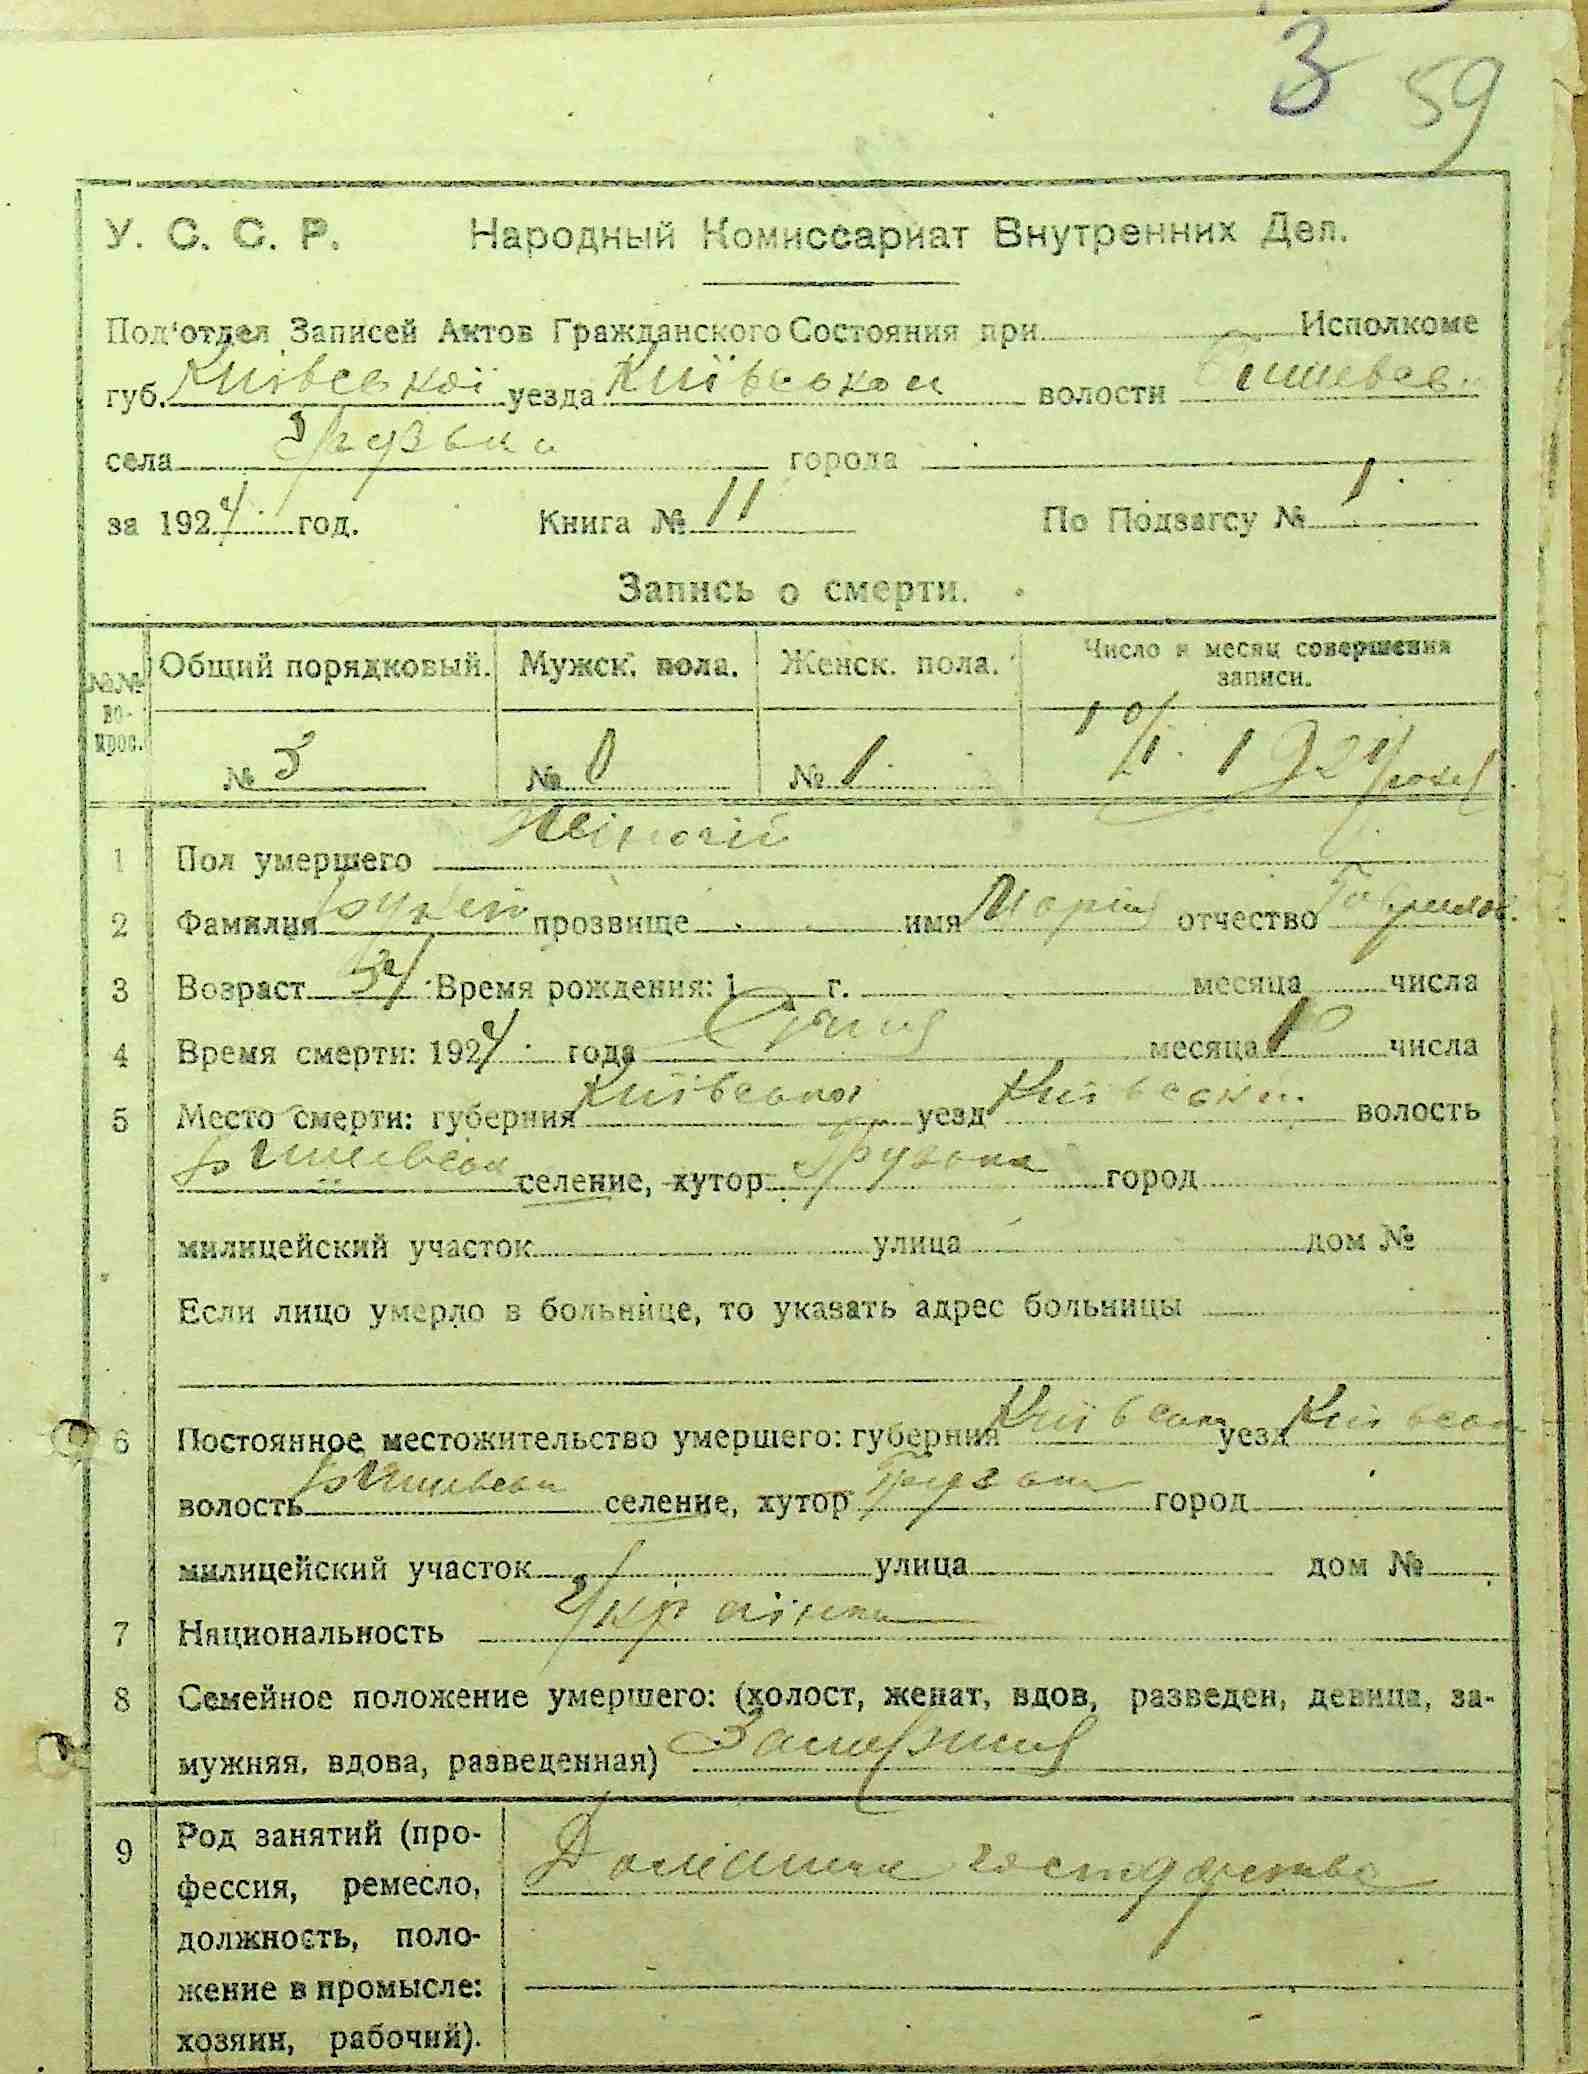 3 59
У. С. С. Р. Народный Комиссариат Внутренних Дел.
Под‘отдел Записей Актов Гражданского Состояния при Исполкоме
губ. Київської уезда Київського волости
села Грузька города
за 1924 год. Книга № 11 По Подзагсу № 1
Запись о смерти.
№№ во-прос. Общий порядковый. Мужск. пола. Женск. пола. Число и месяц совершения записи.
№ 3 № 0 № 1 10/I 1924 року
1 Пол умершего Жіночій
2 Фамилия прозвище имя Марія отчество
3 Возраст 34 Время рождения: 1 г. месяца числа
4 Время смерти: 1924 года Січня месяца 10 числа
5 Место смерти: губерния Київська уезд Київський волость
селение, хутор Грузька город
милицейский участок улица дом №
Если лицо умерло в больнице, то указать адрес больницы
6 Постоянное местожительство умершего: губерния Київська уезд Київськ
волость селение, хутор Грузька город
милицейский участок улица дом №
7 Национальность Українка
8 Семейное положение умершего: (холост, женат, вдов, разведен, девица, за-
мужняя, вдова, разведенная) Замужня
9 Род занятий (про-
фессия, ремесло,
должность, поло-
жение в промысле:
хозяин, рабочий).
Домашне господарство